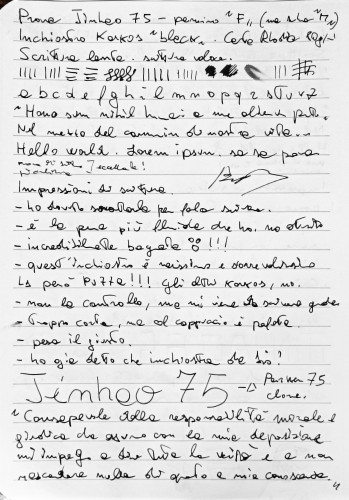 Prova Jinhao 75 - pennino "F" (ma sarà "M")
Inchiostro Kaokos "black". Carta Rhodia 80g/m
Scrittura lenta. Scrittura veloce.
a b c d e f g h i l m n o p q r s t u v z
"Homo sum nihil humani a me alienum puto.
Nel mezzo del cammin di nostra vita...
Hello world. Lorem ipsum. sa sa prova
Impressioni di scrittura.
- ho dovuto per farla scrivere.
- è la penna più fluida che ho, ma
- incredibilmente bagnata !!!
- quest'inchiostro è nerissimo e
Ls però PUZZA!!! Gli altri Kaokos, no.
- non la controllo, ma mi viene da scrivere grande
- Troppo corta, ma col cappuccio è palata.
- pesa il giusto.
- ho già detto che inchiostra da Dio!
Jinhao 75 → Parker 75
clone.
"Consapevole della responsabilità morale e
giuridica che assumo con la mia deposizione
mi impegno a dire tutta la verità e a non
nascondere nulla di quanto a mia conoscenza.